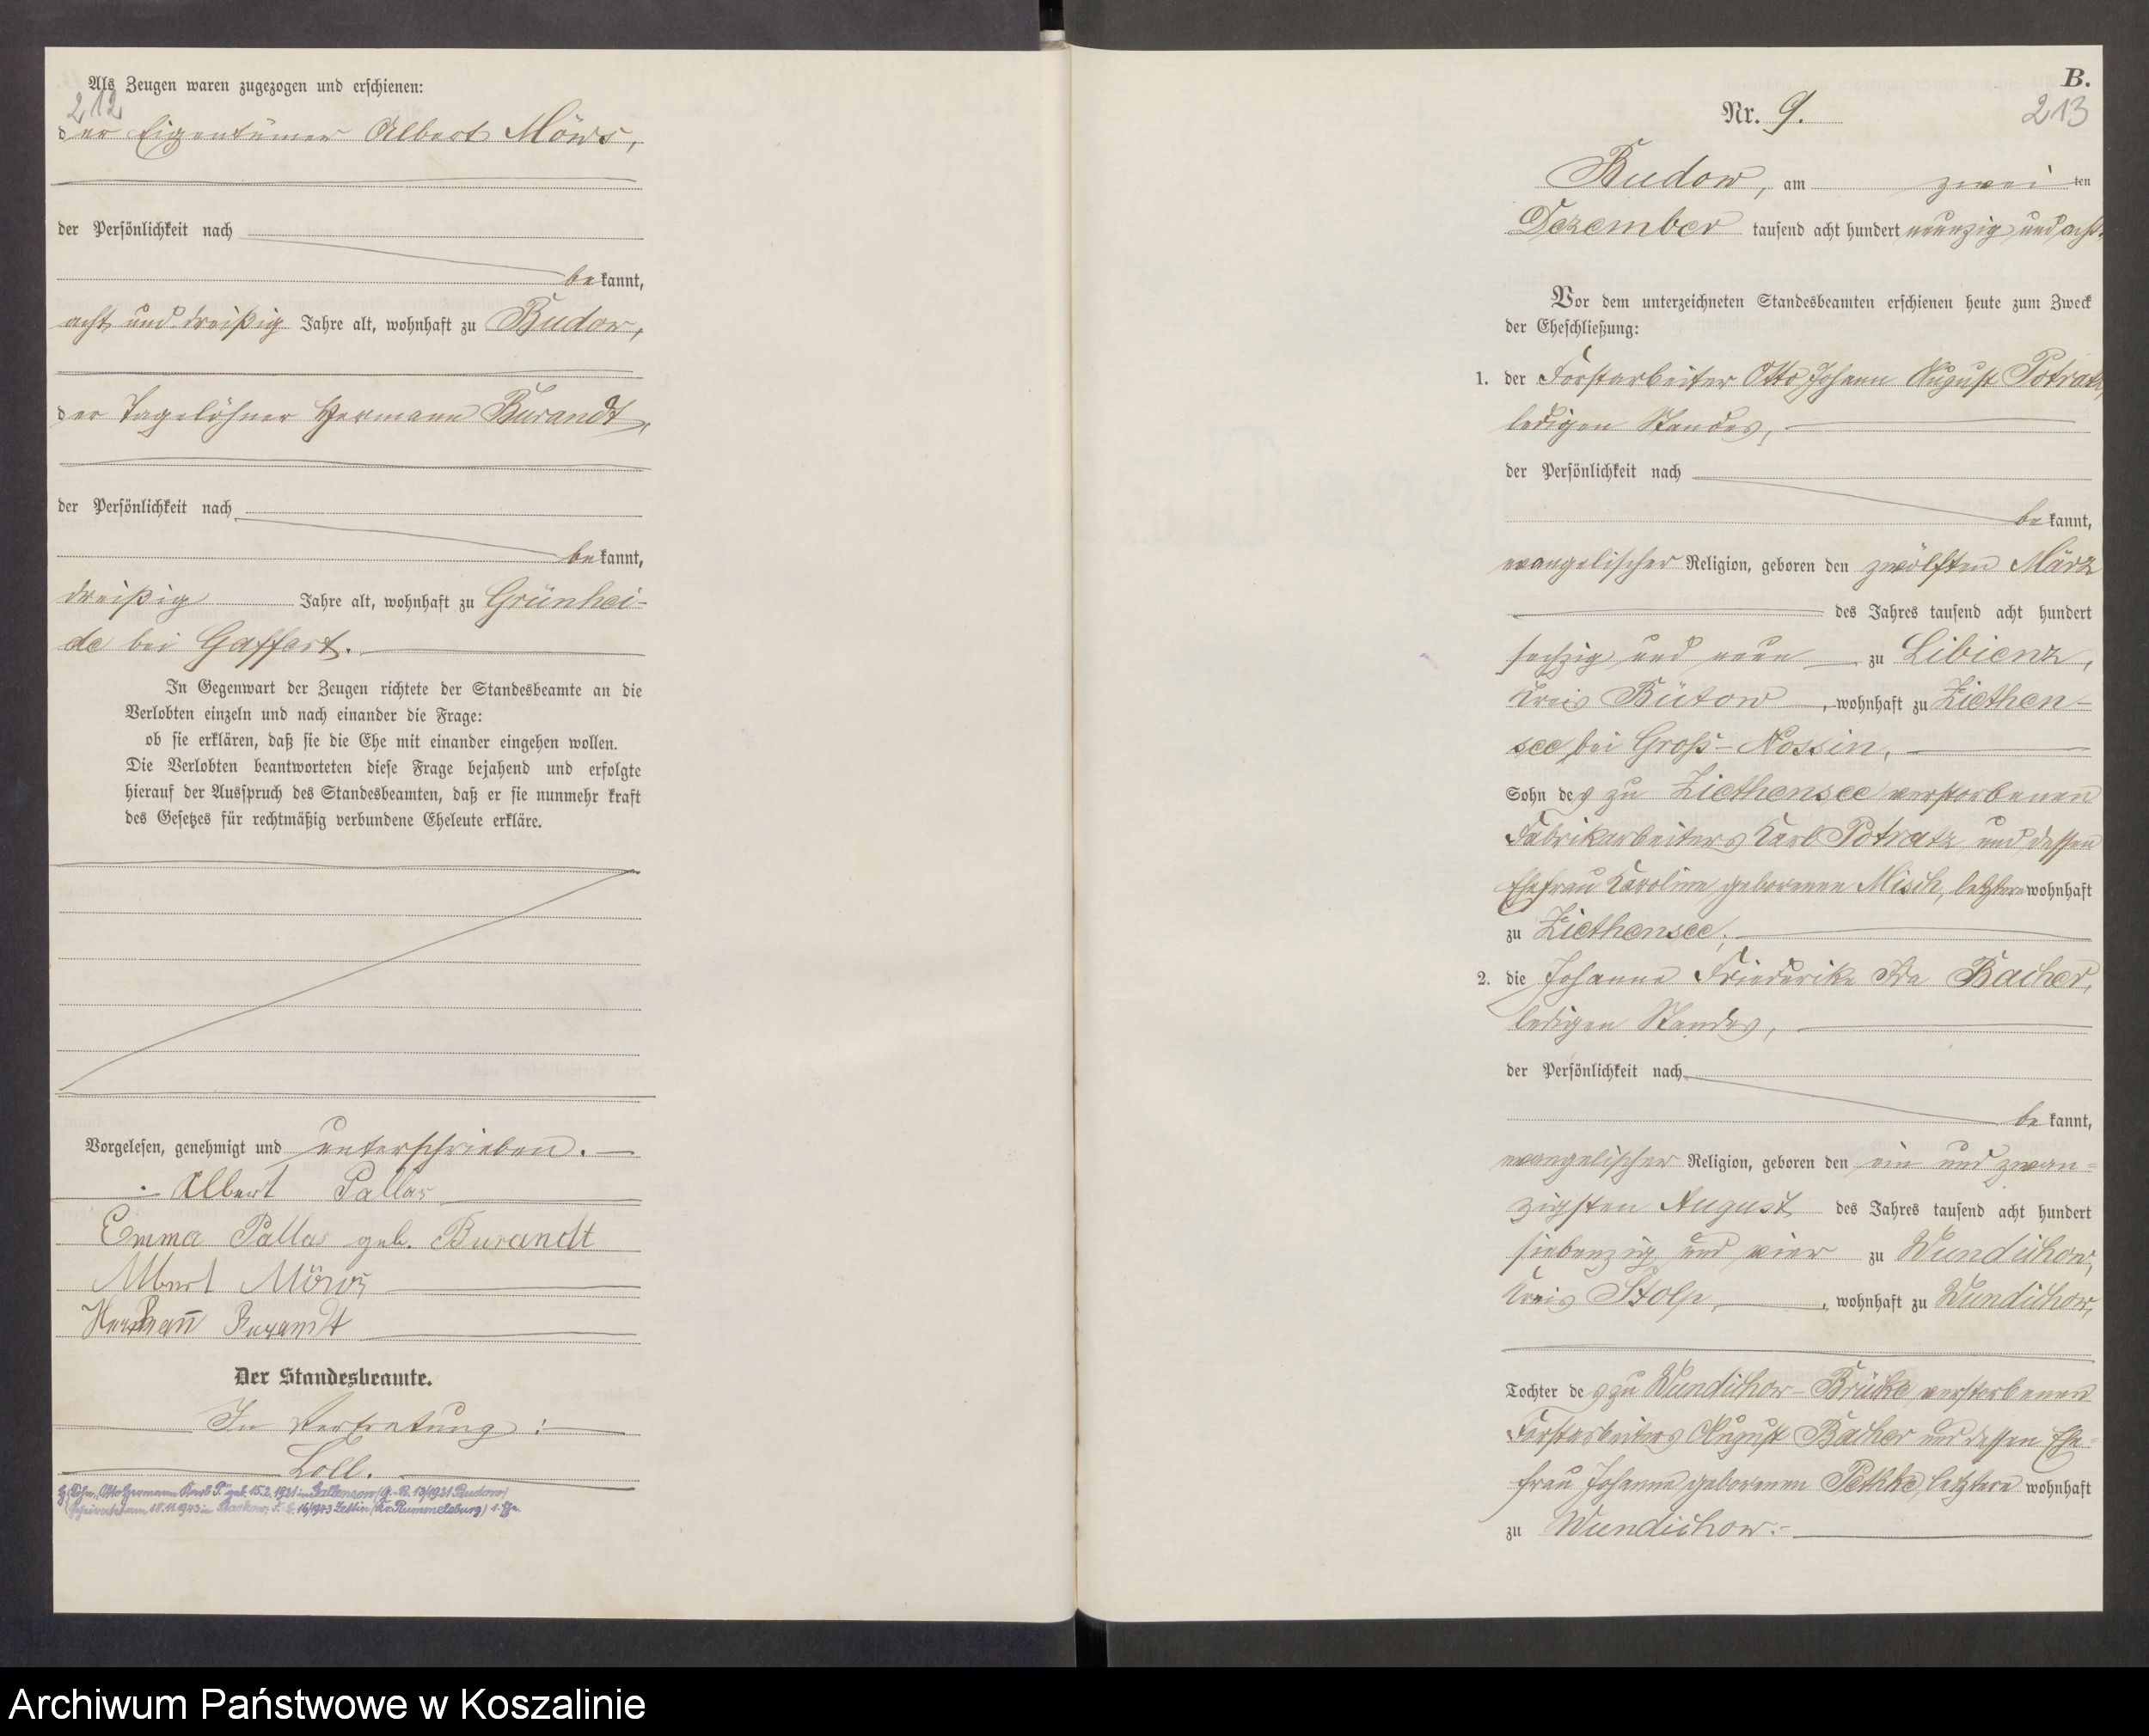 Als Zeugen waren zugezogen und erschienen:
212
der Eigentümer Albert Möws,
der Persönlichkeit nach
bekannt,
acht und dreißig Jahre alt, wohnhaft zu Budow,
der Tagelöhner Hermann Burandt,
der Persönlichkeit nach
bekannt,
dreißig Jahre alt, wohnhaft zu Grünhei-
de bei Gaffert.
In Gegenwart der Zeugen richtete der Standesbeamte an die
Verlobten einzeln und nach einander die Frage:
ob sie erklären, daß sie die Ehe mit einander eingehen wollen.
Die Verlobten beantworteten diese Frage bejahend und erfolgte
hierauf der Ausspruch des Standesbeamten, daß er sie nunmehr kraft
des Gesetzes für rechtmäßig verbundene Eheleute erkläre.
Vorgelesen, genehmigt und unterschrieben.
Albert Pallas
Emma Pallas geb. Burandt
Albert Möws
Hermann Burandt
Der Standesbeamte.
In Vertretung:
Loll.
Sohn „Otto Hermann Karl P." geb. 15.2.1921 in Gallensow (G.-R. 13/1921 Budow)
Geheiratet am 18.11.1943 in H. R. 16/1943 Zettin (Kr. Rummelsburg)
B.
Nr. 9.
213
Budow, am zweiten
Dezember tausend acht hundert neunzig und acht.
Vor dem unterzeichneten Standesbeamten erschienen heute zum Zweck
der Eheschließung:
1. der Forstarbeiter Otto Johann August Potratz,
ledigen Standes,
der Persönlichkeit nach
bekannt,
evangelischer Religion, geboren den zwölften März
des Jahres tausend acht hundert
sechzig und neun zu Libienz,
Kreis Bütow, wohnhaft zu Ziethen-
see bei Groß-Nossin,
Sohn des zu Ziethensee verstorbenen
Fabrikarbeiters Karl Potratz und dessen
Ehefrau Karoline geborenen Misch, letztere wohnhaft
zu Ziethensee;
2. die Johanna Friederike Ida Bacher,
ledigen Standes,
der Persönlichkeit nach
bekannt,
evangelischer Religion, geboren den ein und zwan-
zigsten August des Jahres tausend acht hundert
siebenzig und vier zu Wundichow,
Kreis Stolp, wohnhaft zu Wundichow,
Tochter des zu Wundichow-Brücke verstorbenen
Forstarbeiters August Bacher und dessen Ehe-
frau Johanna geborenen Pethke, letztere wohnhaft
zu Wundichow.
Archiwum Państwowe w Koszalinie